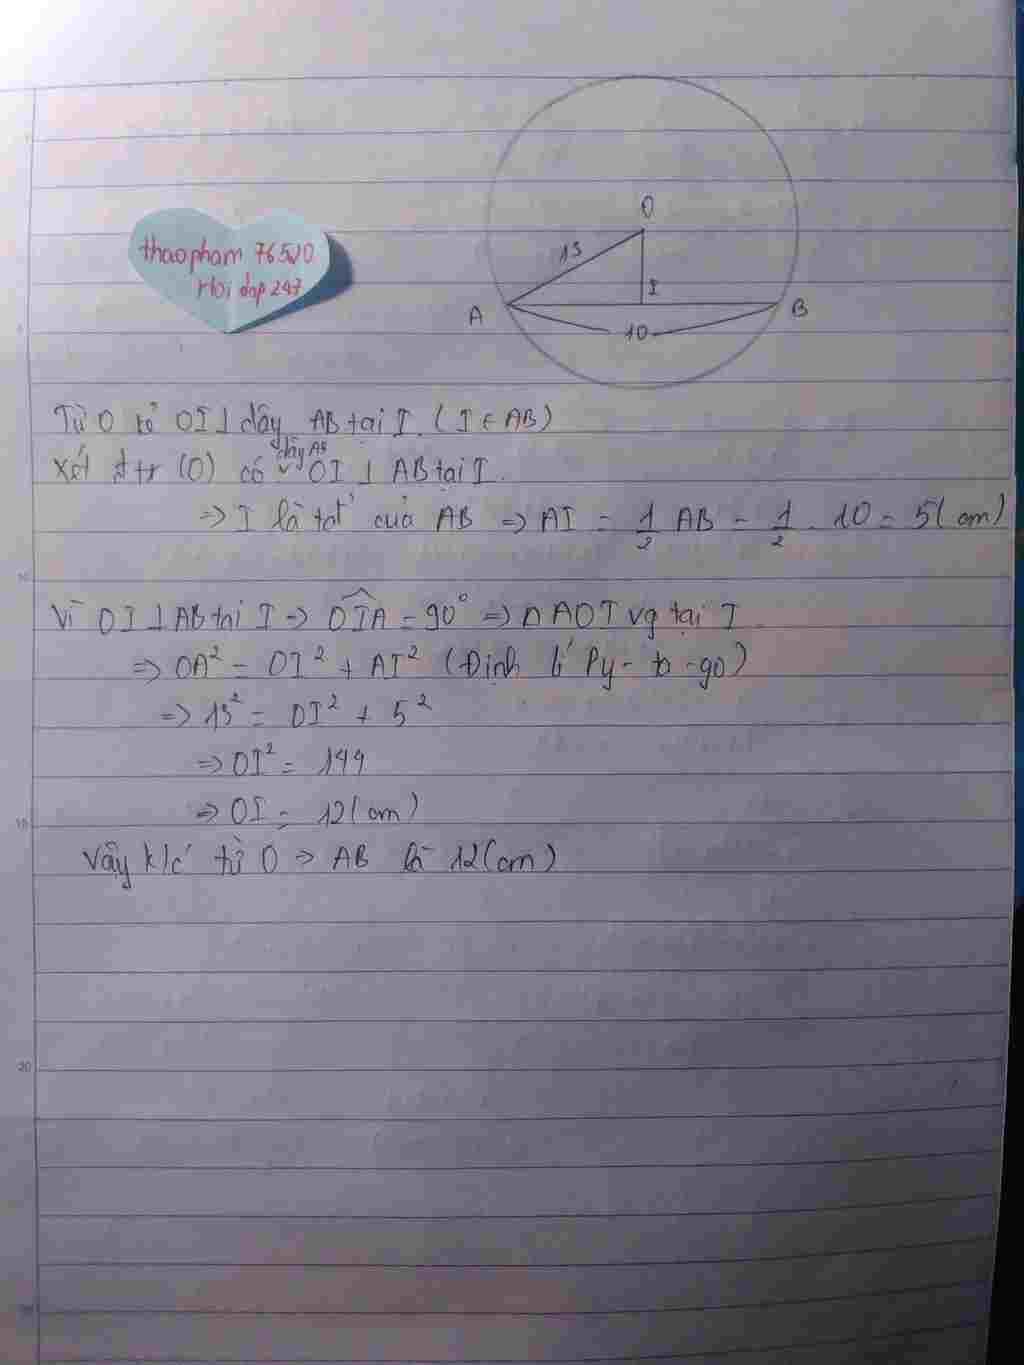 thaopham 76520
Hoi dap 247
O
13
I
A
B
10
Từ O kẻ OI ⊥ dây AB tại I. (I ∈ AB)
dây AB
Xét đtr (O) có OI ⊥ AB tại I.
=> I là tđ của AB => AI = 1/2 AB = 1/2 . 10 = 5(cm)
Vì OI ⊥ AB tại I => OIA = 90° => Δ AOI vg tại I
=> OA² = OI² + AI² (Định lí Py-ta-go)
=> 13² = OI² + 5²
=> OI² = 144
=> OI = 12(cm)
Vậy k/c từ O -> AB là 12(cm)
10
15
20